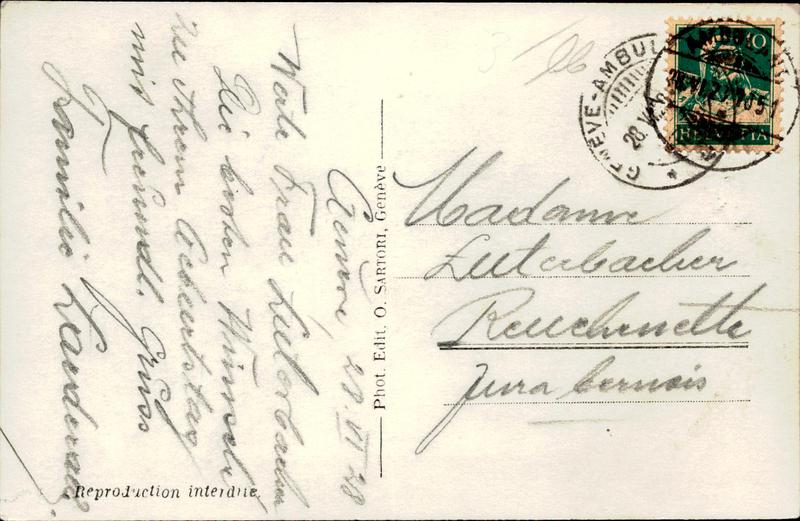 Genève, 28.VI 28
Werte Frau Luterbacher
Die besten Wünsche
zu Ihrem Geburtstag
mit freundl. Gruss
Familie
Phot. Edit. O. SARTORI, Genève
Reproduction interdite.
GENÈVE-AMBUL
28.VI
AMBULANT
10
HELVETIA
Madame
Luterbacher
Reuchenette
Jura bernois